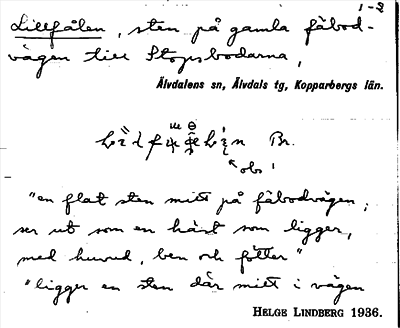 1-2
Lillfålen, sten på gamla fäbod-
vägen till Stopsbodarna,
Älvdalens sn, Älvdals tg, Kopparbergs län.
Br.
obs!
"en flat sten mitt på fäbodvägen,
ser ut som en häst som ligger,
med huvud, ben och fötter"
"ligger en sten där mitt i vägen
HELGE LINDBERG 1936.